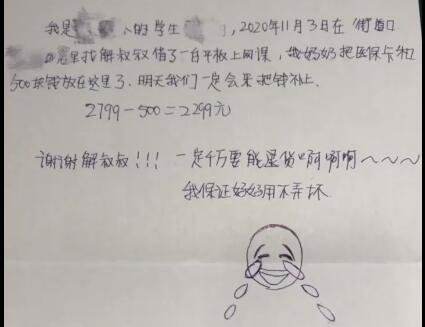 我是 小的学生 ，2020年11月3日在 街道口
店里找解叔叔借了一台平板上网课，我妈妈把医保卡和
500块钱放在这里了，明天我们一定会来把钱补上
2799－500＝2299元
谢谢解叔叔！！！ 一定千万要能退货口阿啊啊～～～
我保证好好用不弄坏